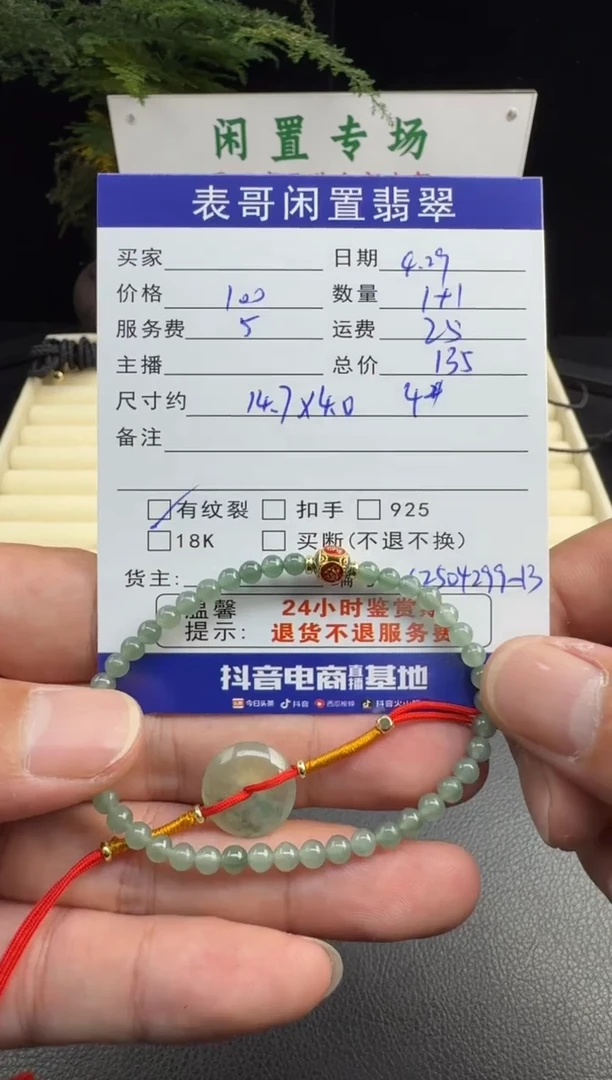 闲置专场
表哥闲置翡翠
买家 日期 4.29
价格 100 数量 1+1
服务费 5 运费 25
主播 总价 135
尺寸约 14.7×4.0 4#
备注
有纹裂 扣手 925
18K 买断(不退不换)
货主: 2504299-13
温馨 24小时鉴赏
提示: 退货不退服务费
抖音电商直播基地
今日头条 抖音 西瓜视频 抖音火山